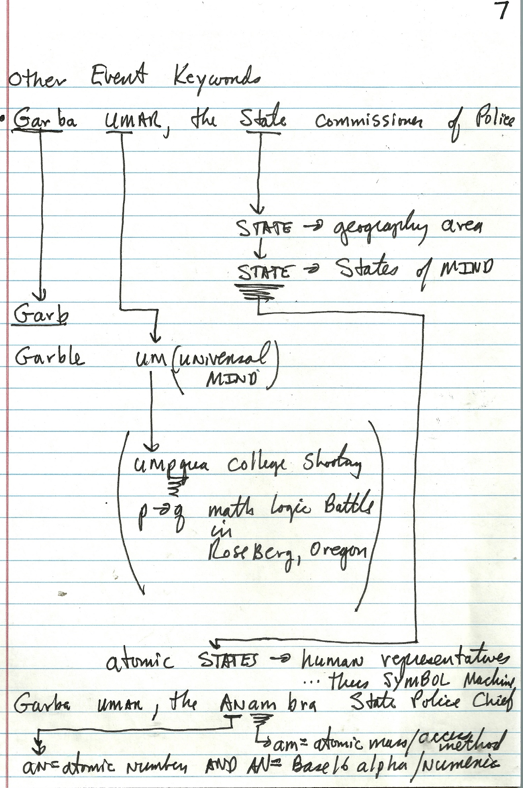 7
Other Event Keywords
• Garba UMAR, the State Commissioner of Police
STATE → geography area
STATE → States of MIND
Garb
Garble UM (UNIVERSAL
MIND)
UMpqua College Shooting
p→q math logic Battle
in
RoseBerg, Oregon
atomic STATES → human representatives
... thus SYMBOL Machine
Garba UMAR, the ANambra State Police Chief
am = atomic mass/access method
AN = atomic number AND AN = Base 16 alpha/Numeric